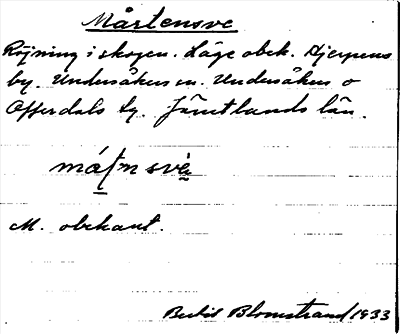 Mårtensve
Röjning i skogen. Läge obek. Djerpens
by. Undersåkers sn. Undersåkers o
Offerdals tg. Jämtlands län.
M. obekant.
Bertil Blomstrand 1933